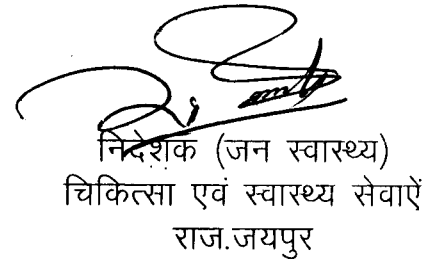 निदेशक (जन स्वास्थ्य)
चिकित्सा एवं स्वास्थ्य सेवाऐं
राज.जयपुर